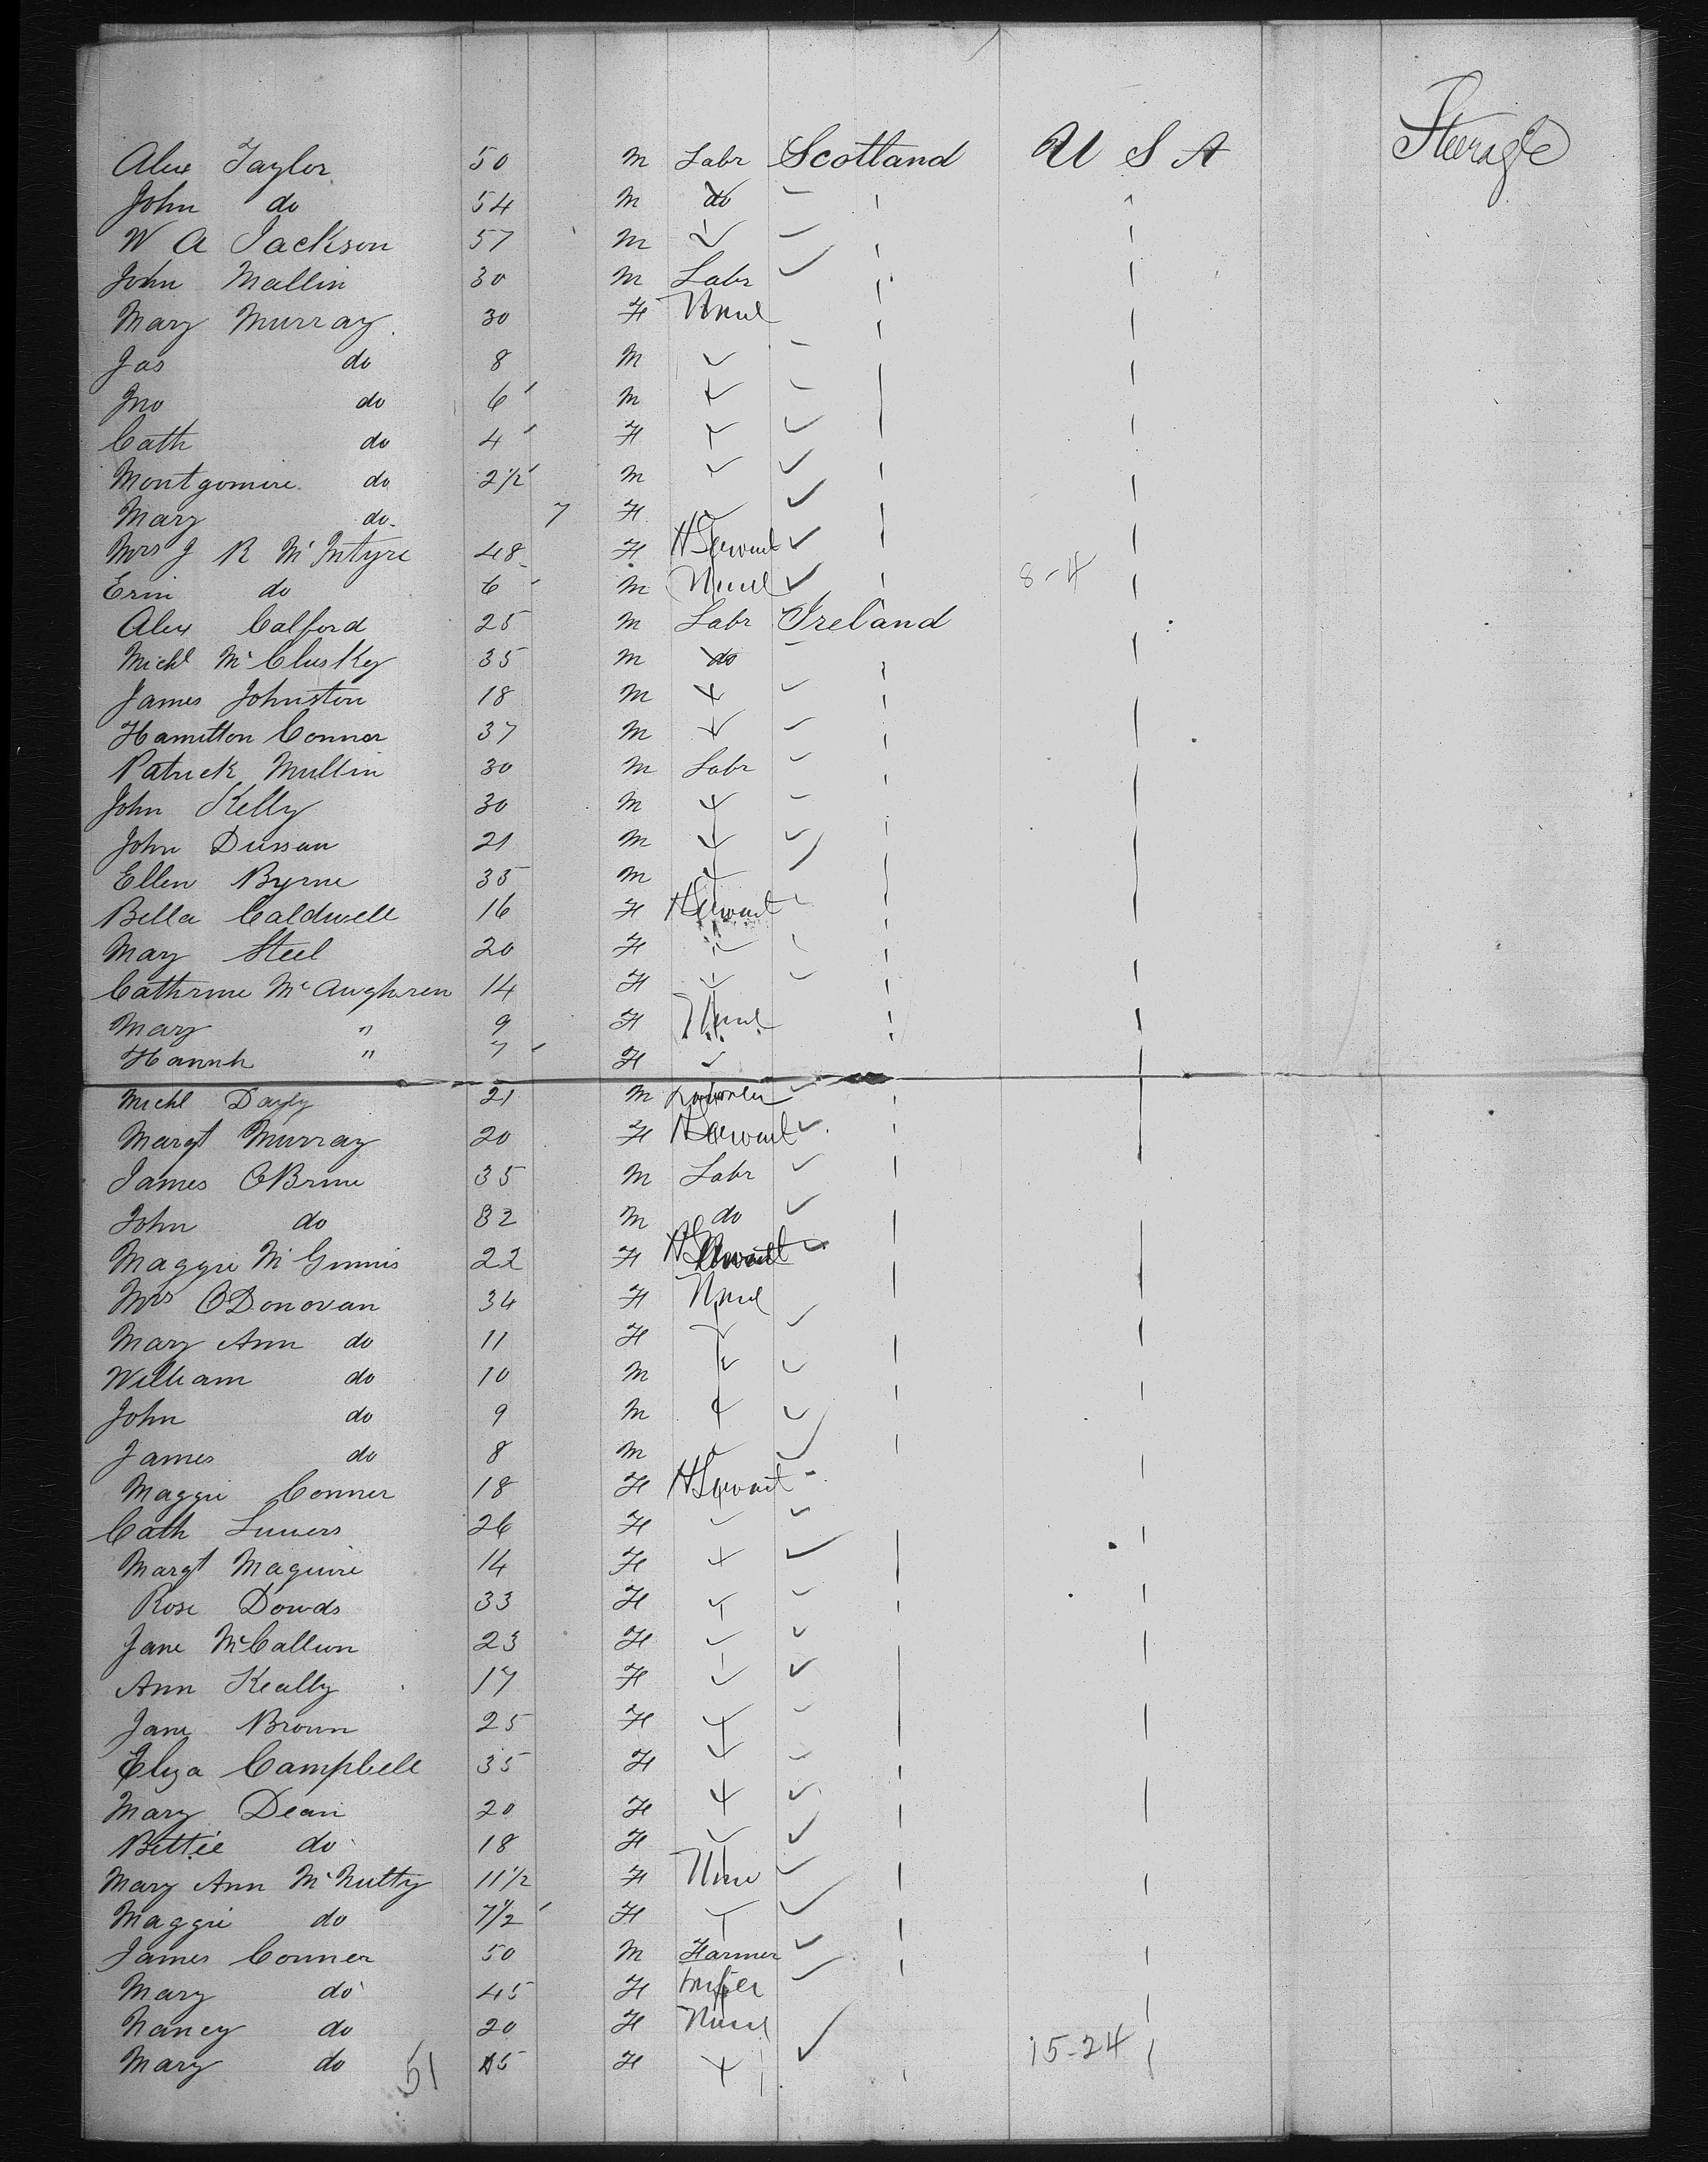 Steerage
Alex Taylor 50 M Labr Scotland U S A
John do 54 M do
W A Jackson 57 M
John Mallin 30 M Labr
Mary Murray 30 F None
Jas do 8 M
Jno do 6 M
Cath do 4 F
Montgomire do 2 1/2 M
Mary do 7 F
Mrs J R McIntyre 48 F H Servant
Erin do 6 M None 8-4
Alex Calford 25 M Labr Ireland
Michl McClusky 35 M do
James Johnston 18 M
Hamilton Connor 37 M
Patrick Mullin 30 M Labr
John Kelly 30 M
John 21 M
Ellen Byrne 35 M
Bella Caldwell 16 F H Servant
Mary Steel 20 F
Cathrine McAughren 14 F
Mary " 9 F None
Hannh " 7 F
Michl Dayly 21 M
Margt Murray 20 F H Servant
James OBrine 35 M Labr
John do 32 M do
Maggie McGinnis 22 F H Servant
Mrs ODonovan 34 F None
Mary Ann do 11 F
William do 10 M
John do 9 M
James do 8 M
Maggie Conner 18 F H Servant
Cath 26 F
Margt Maguire 14 F
Rose Dowds 33 F
Jane McCallion 23 F
Ann Keally 17 F
Jane Brown 25 F
Eliza Campbell 35 F
Mary Dean 20 F
Bettie do 18 F
Mary Ann McNutty 11 1/2 F None
Maggie do 7 1/2 F
James Conner 50 M Farmer
Mary do 45 F Wife
Nancy do 20 F None
Mary do 15 F 15-24
51